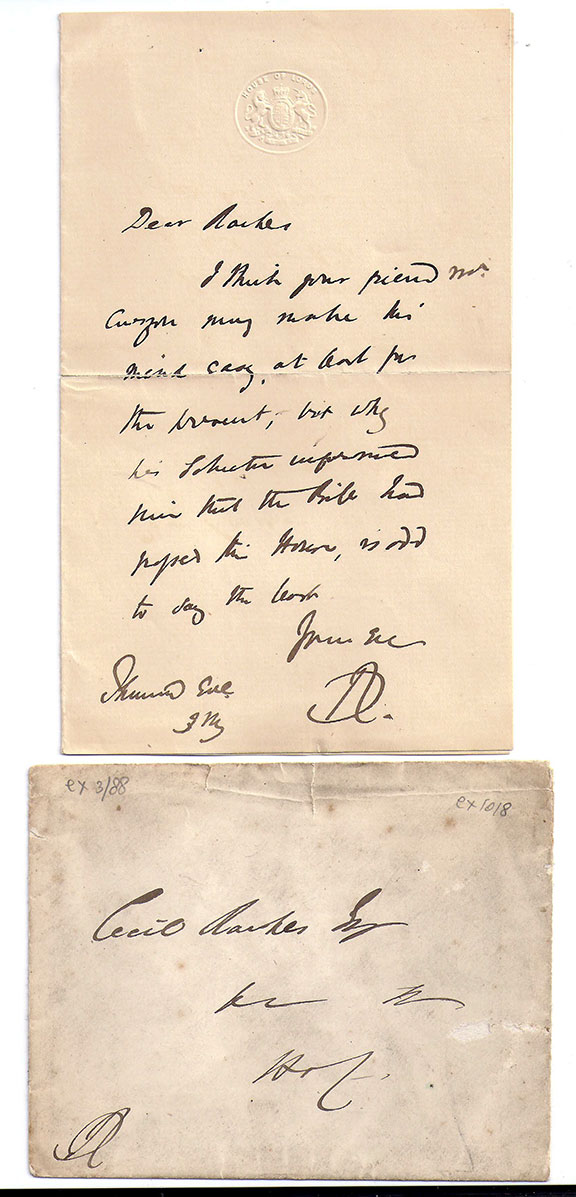 HOUSE OF LORDS
Dear Raikes
I think your friend Mr.
Curzon may make his
mind easy, at least for
the present, but why
his Solicitor informed
him that the Bill had
passed this House, is odd
to say the least
Yours
3 My
ex 3/88
ex 10/8
Cecil Raikes Esq
HoC